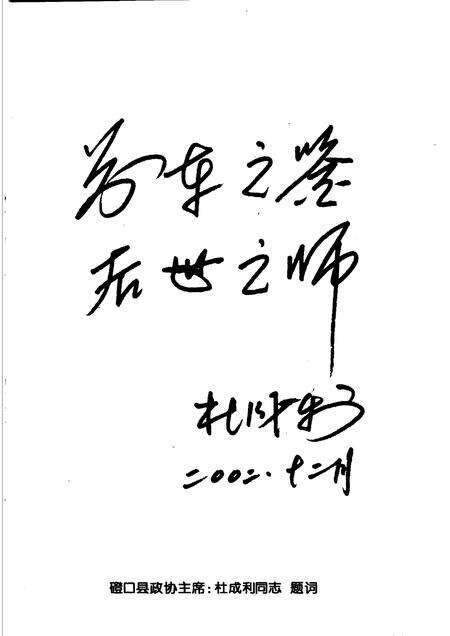 前车之鉴
后世之师
杜成利
二00二.十二月
磴口县政协主席:杜成利同志 题词